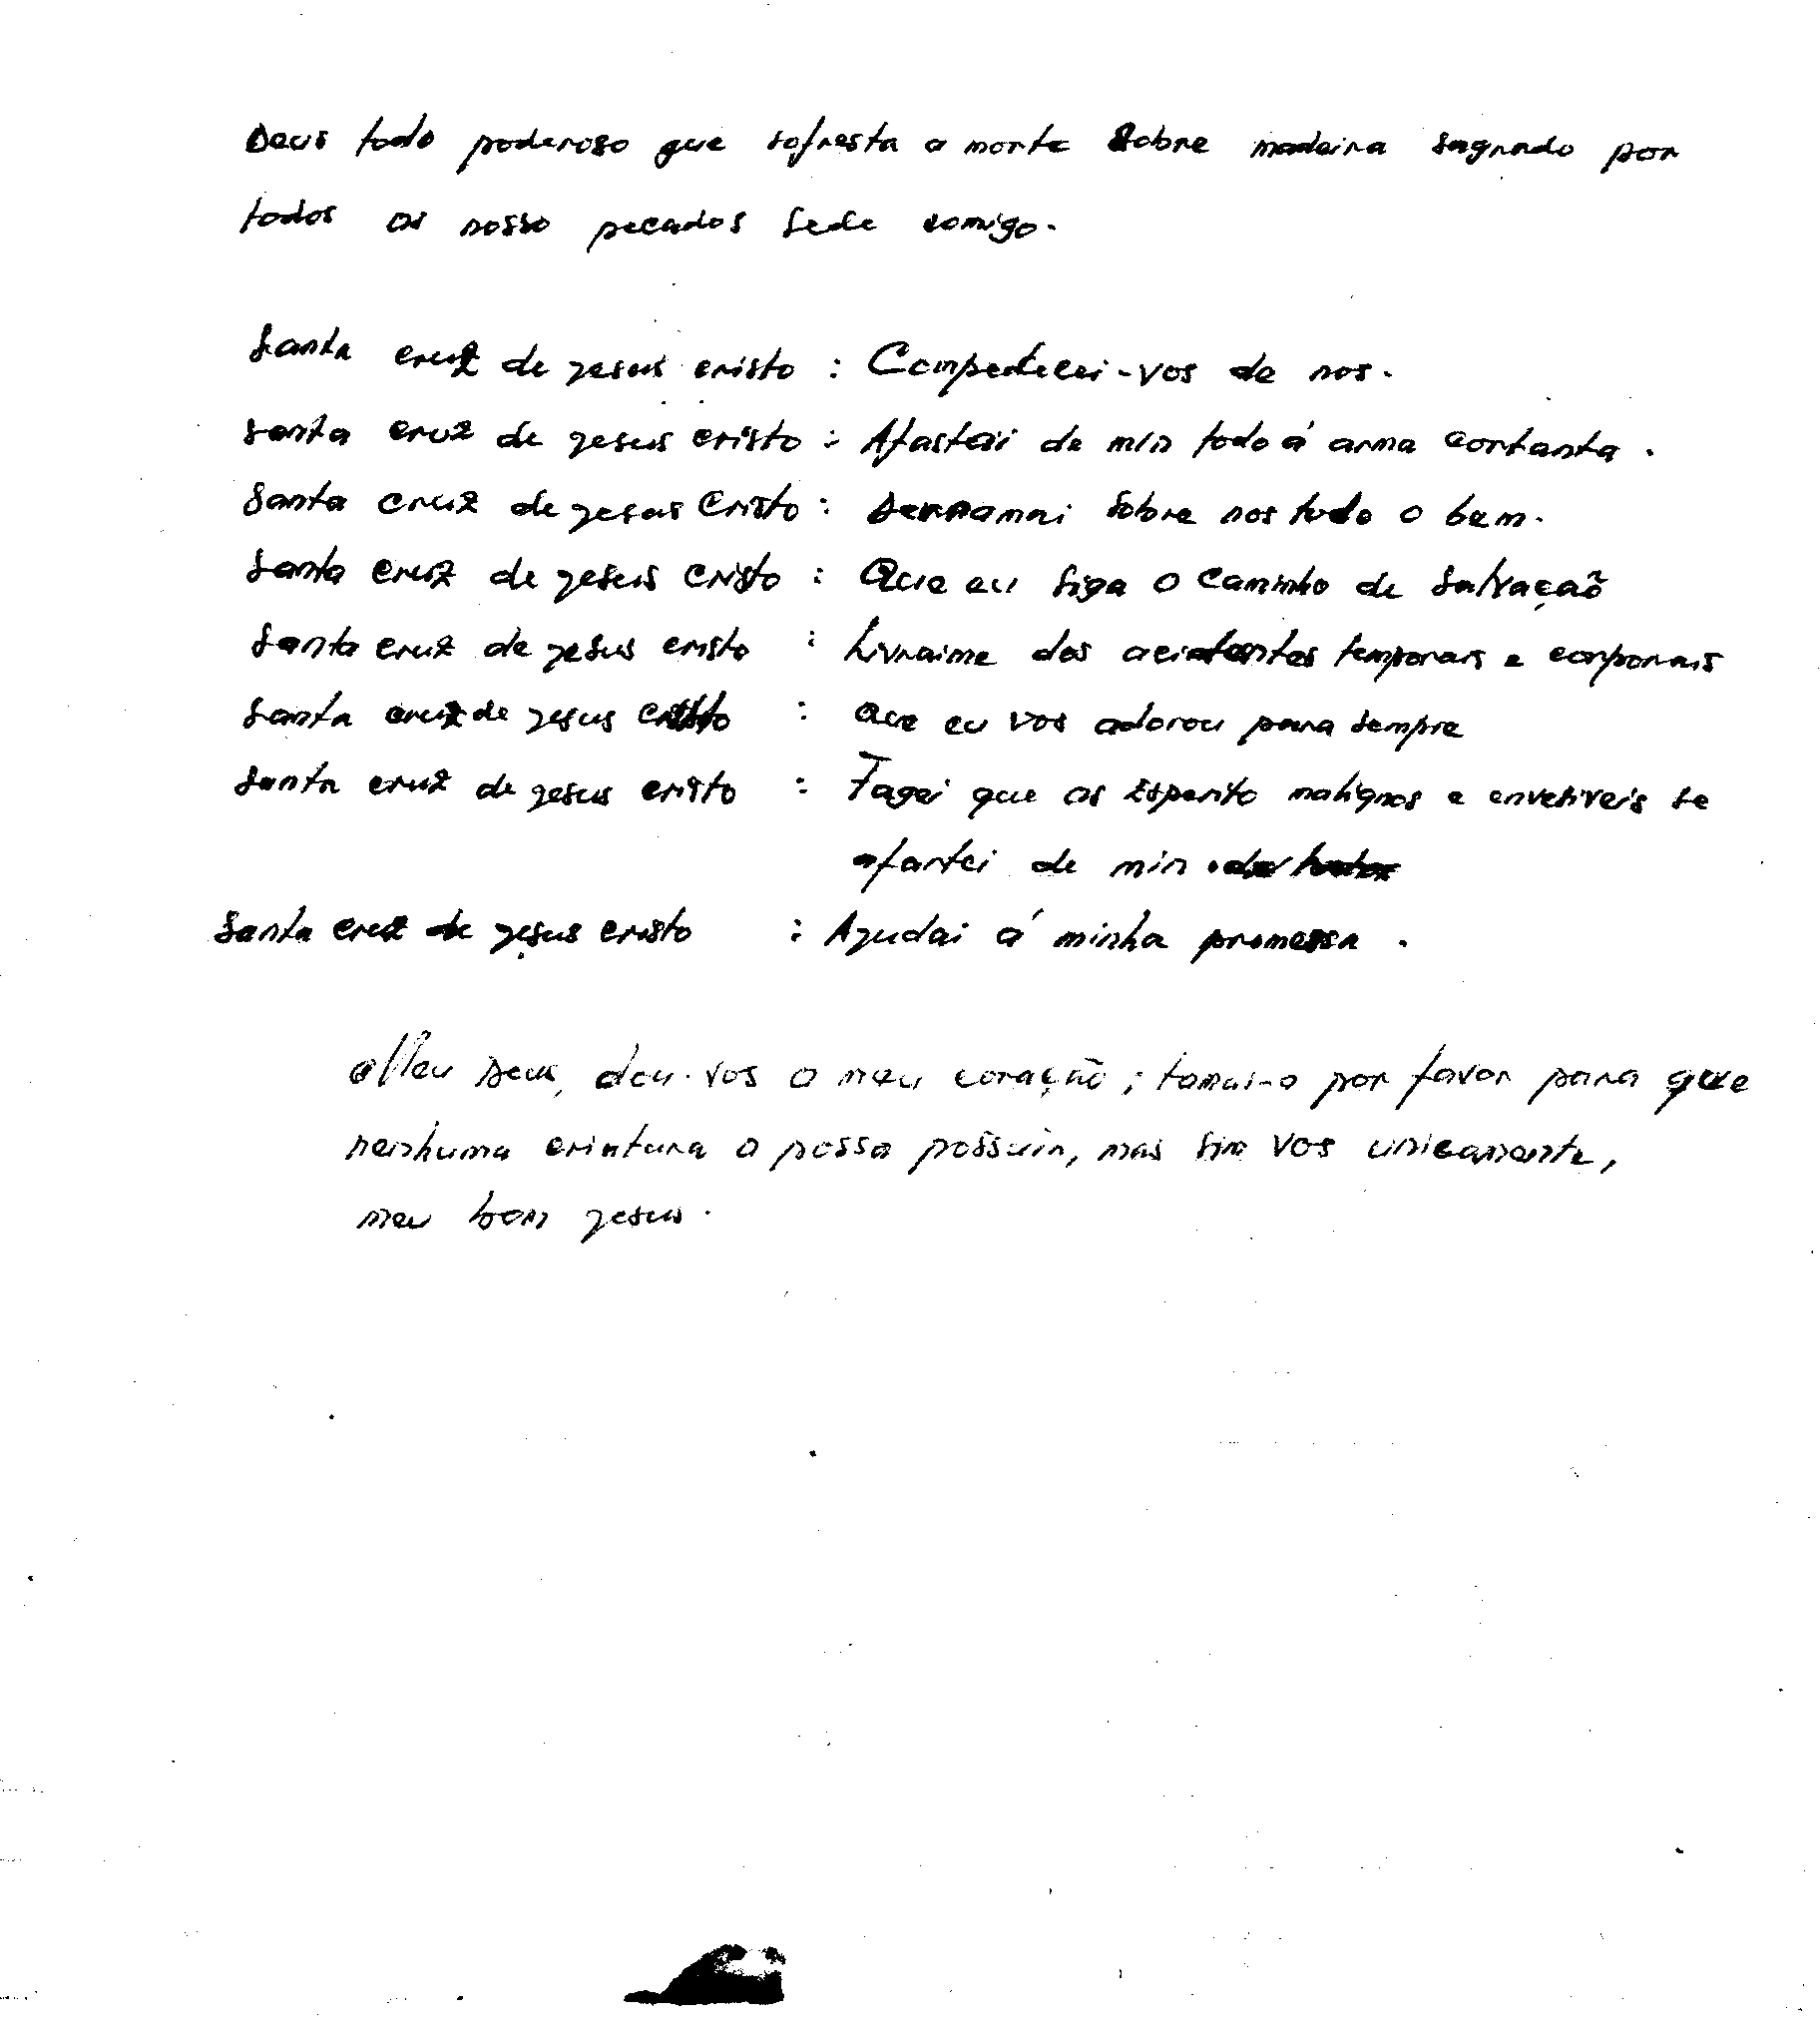 Deus todo poderoso que sofresta a morte sobre madeira sagrado por
todos os nosso pecados sede comigo.
Santa cruz de jesus cristo : Compedecei-vos de nos.
Santa cruz de jesus cristo : Afastai de min todo á arma cortanta.
Santa cruz de jesus Cristo : Derramai sobre nos tudo o bem.
Santa cruz de jesus cristo : Que eu siga o caminho de salvação
Santa cruz de jesus cristo : Livraime dos acidantes temporais e corporais
Santa cruz de jesus cristo : Que eu vos adorou para sempre
Santa cruz de jesus cristo : Fagei que os Esperito malignos e envesiveis se
afastei de min
Santa cruz de jesus cristo : Ajudai á minha promessa.
Meu Deus, dou-vos o meu coração; tomai-o por favor para que
nenhuma criatura o possa possuir, mas sim vos unicamente,
meu bom jesus.